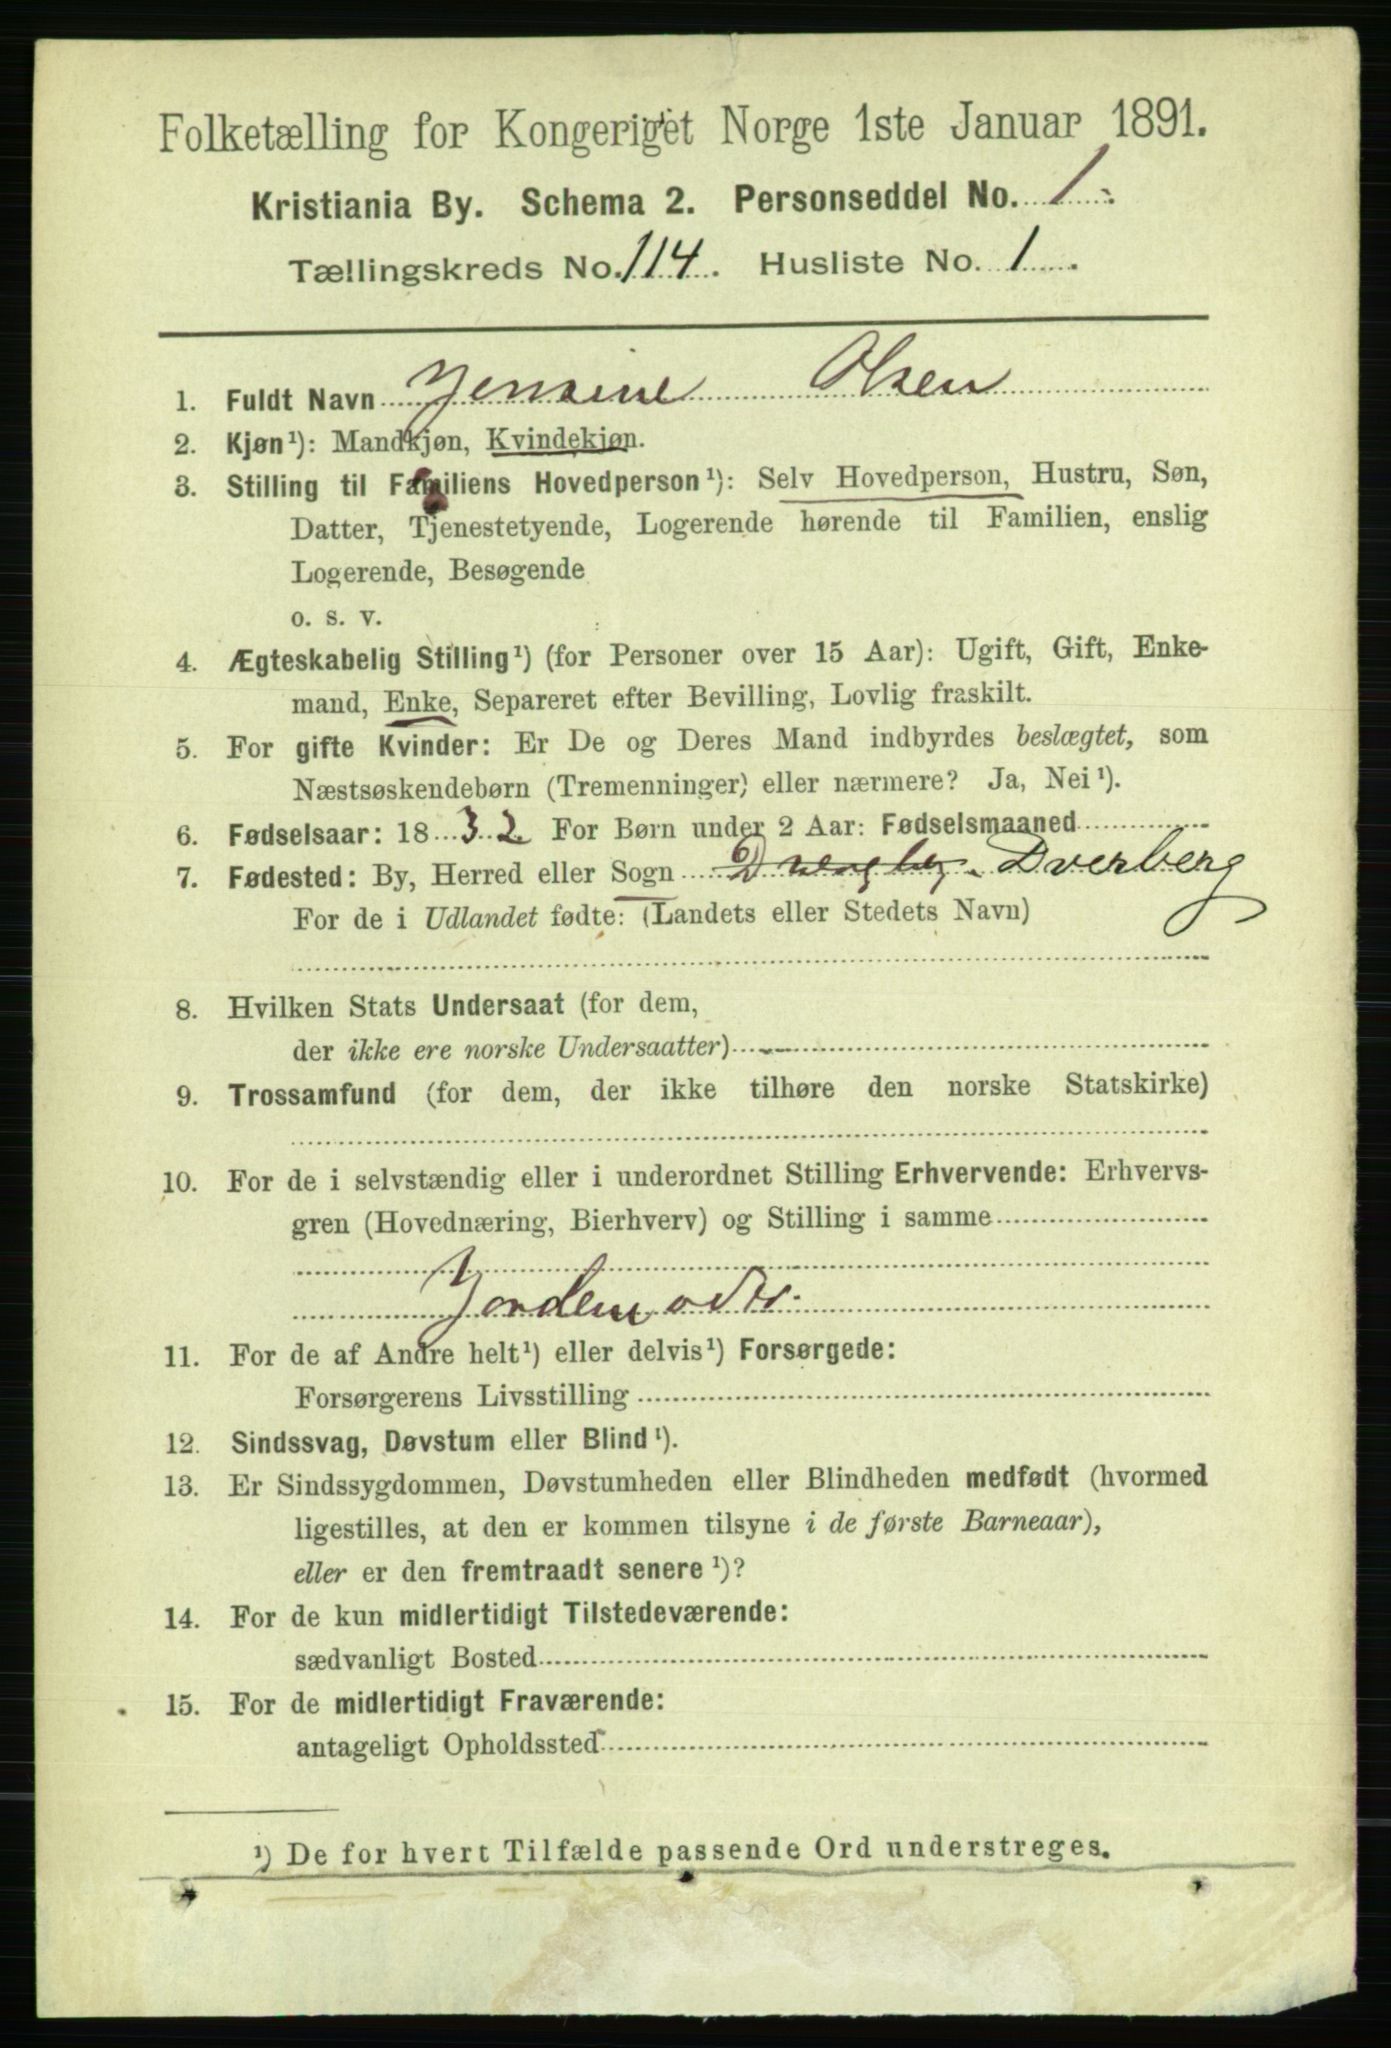 Folketælling for Kongeriget Norge 1ste Januar 1891.
Kristiania By. Schema 2. Personseddel No. 1.
Tællingskreds No. 114. Husliste No. 1.
1. Fuldt Navn Jensine Olsen
2. Kjøn¹): Mandkjøn, Kvindekjøn.
3. Stilling til Familiens Hovedperson¹): Selv Hovedperson, Hustru, Søn,
Datter, Tjenestetyende, Logerende hørende til Familien, enslig
Logerende, Besøgende
o. s. v.
4. Ægteskabelig Stilling¹) (for Personer over 15 Aar): Ugift, Gift, Enke-
mand, Enke, Separeret efter Bevilling, Lovlig fraskilt.
5. For gifte Kvinder: Er De og Deres Mand indbyrdes beslægtet, som
Næstsøskendebørn (Tremenninger) eller nærmere? Ja, Nei¹).
6. Fødselsaar: 1832 For Børn under 2 Aar: Fødselsmaaned
7. Fødested: By, Herred eller Sogn Dverberg
For de i Udlandet fødte: (Landets eller Stedets Navn)
8. Hvilken Stats Undersaat (for dem,
der ikke ere norske Undersaatter)
9. Trossamfund (for dem, der ikke tilhøre den norske Statskirke)
10. For de i selvstændig eller i underordnet Stilling Erhvervende: Erhvervs-
gren (Hovednæring, Bierhverv) og Stilling i samme
Jordemoder.
11. For de af Andre helt¹) eller delvis¹) Forsørgede:
Forsørgerens Livsstilling
12. Sindssvag, Døvstum eller Blind¹).
13. Er Sindssygdommen, Døvstumheden eller Blindheden medfødt (hvormed
ligestilles, at den er kommen tilsyne i de første Barneaar),
eller er den fremtraadt senere¹)?
14. For de kun midlertidigt Tilstedeværende:
sædvanligt Bosted
15. For de midlertidigt Fraværende:
antageligt Opholdssted
¹) De for hvert Tilfælde passende Ord understreges.